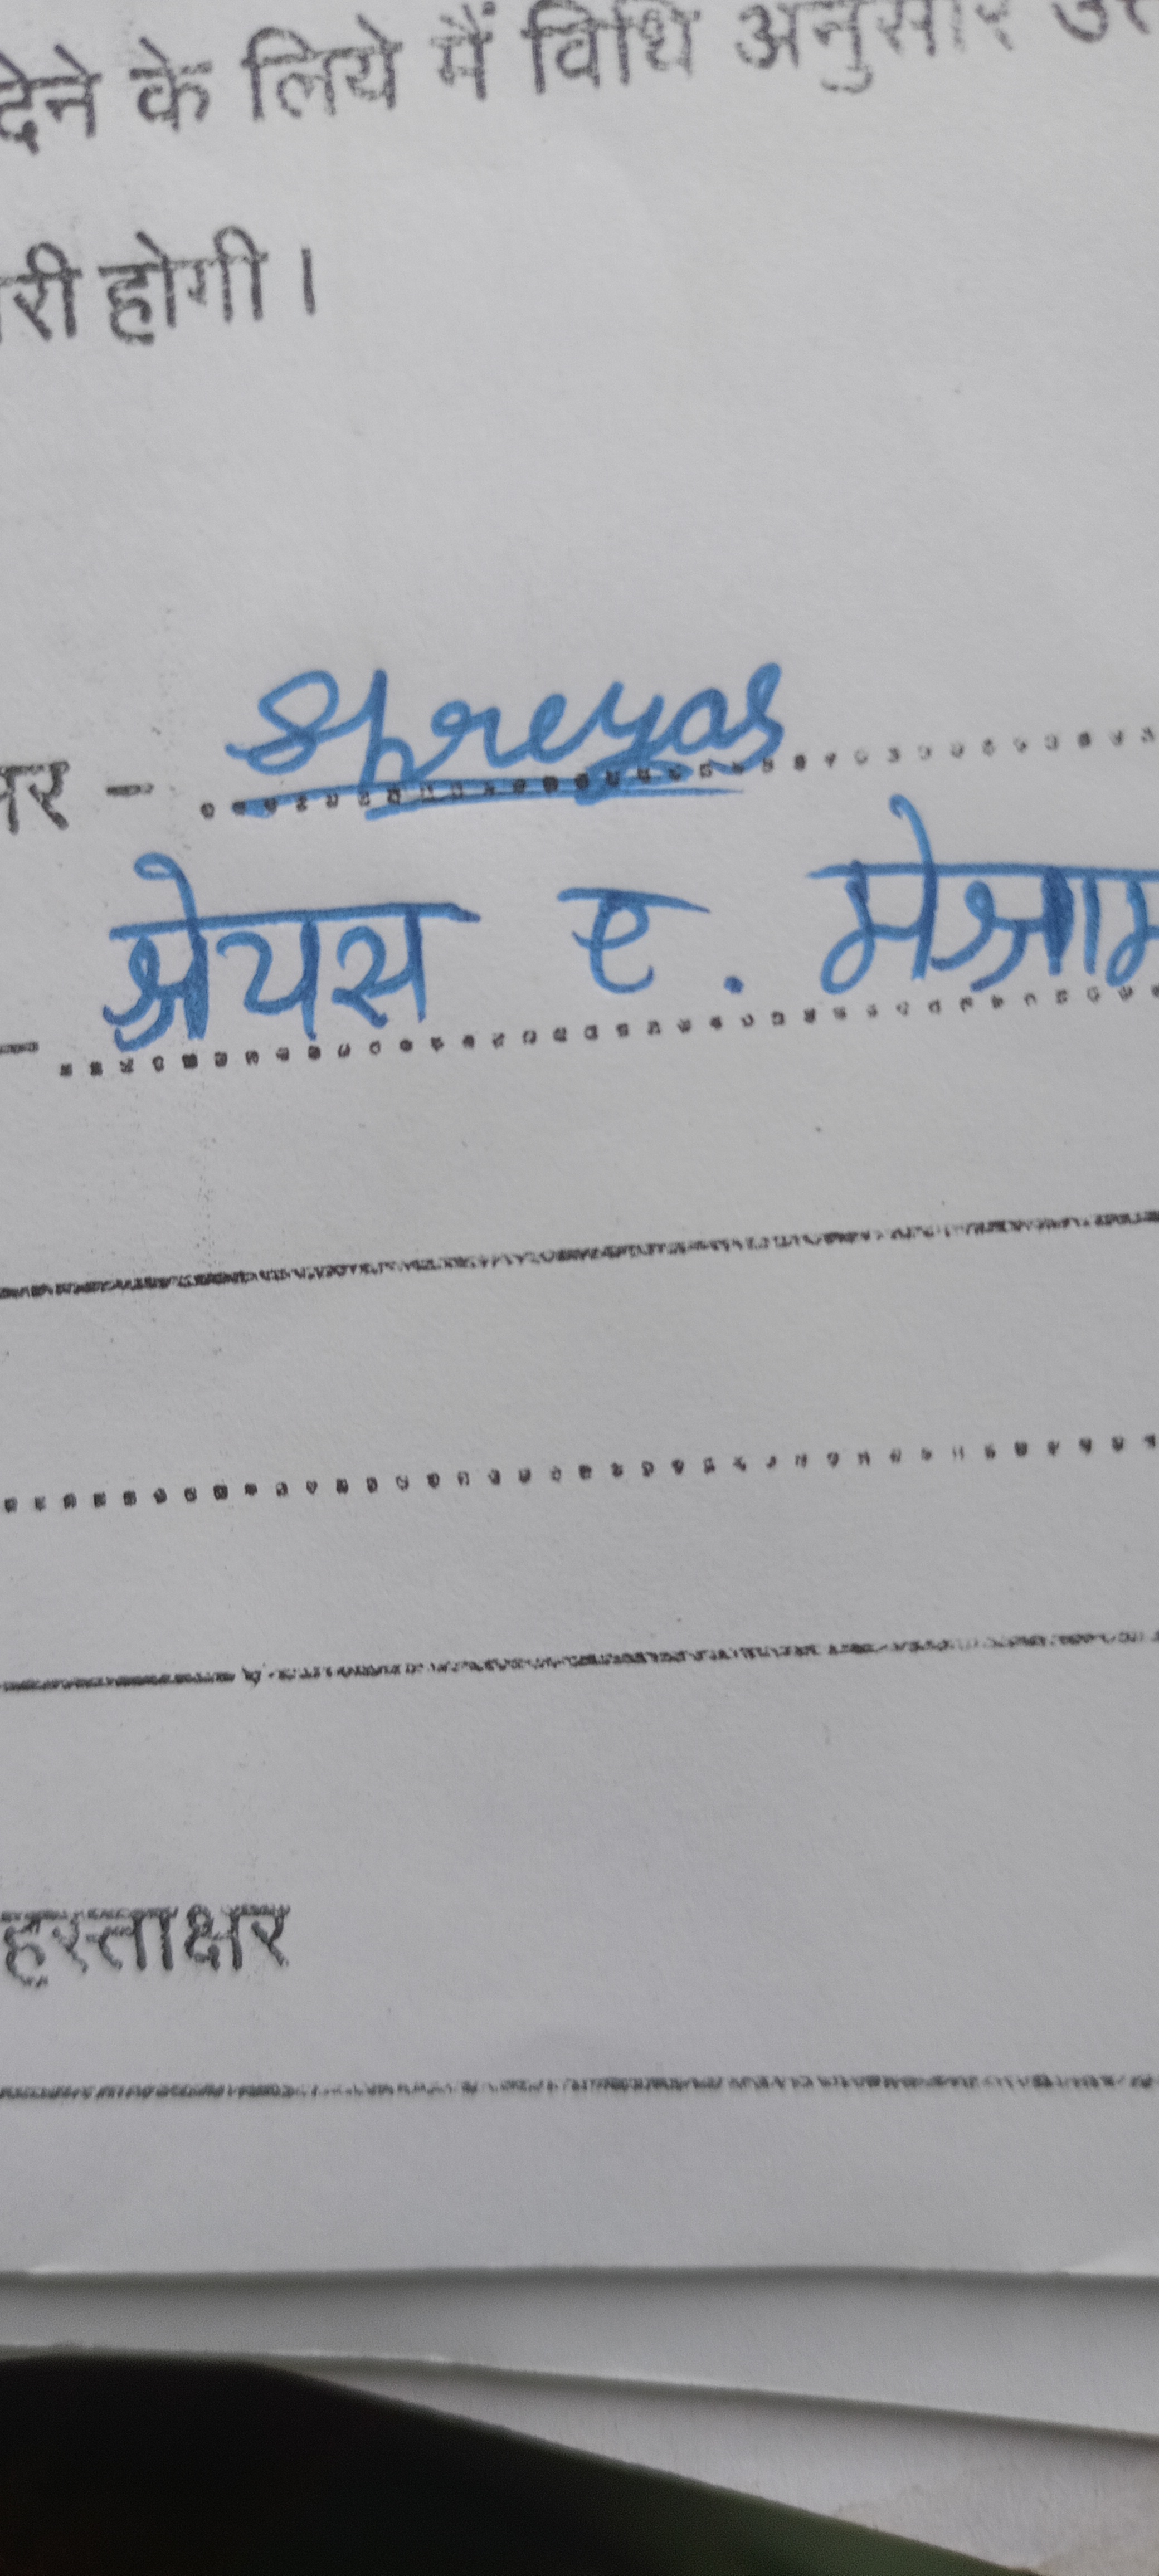 देने के लिये मैं विधि अनुसार
री होगी।
र - Shreyas
- श्रेयस ए. मेश्राम
हस्ताक्षर